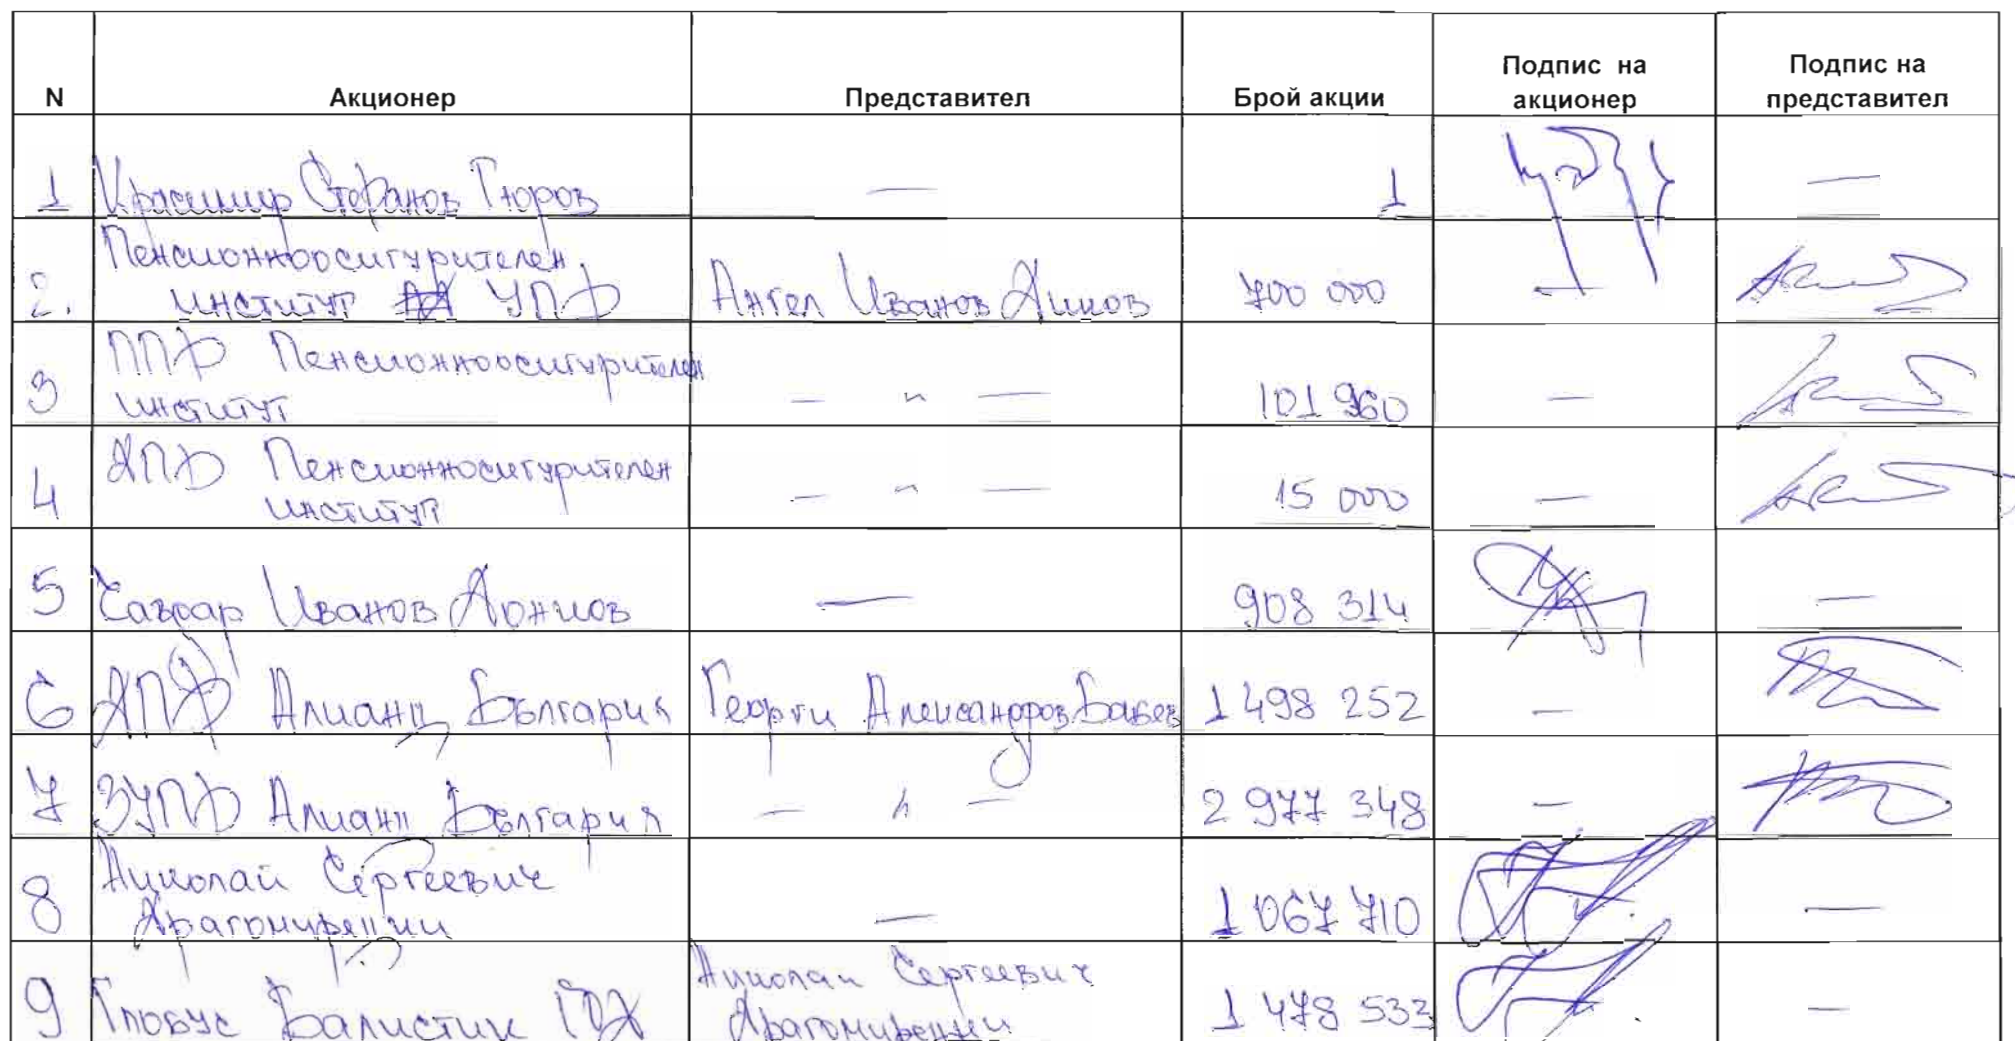 N Акционер Представител Брой акции Подпис на акционер Подпис на представител
1 Красимир Стефанов Тюров — 1 —
2. Пенсионноосигурителен
институт УПФ Ангел Иванов 700 000 —
3 ППФ Пенсионноосигурителен
институт — " — 101 960 —
4 ДПФ Пенсионноосигурителен
институт — " — 15 000 —
5 Иванов — 908 314 —
6 ДПФ Алианц България Георги Александров Бабев 1 498 252 —
7 ЗУПФ Алианц България — " — 2 977 348 —
8 Николай Сергеевич
— 1 067 710 —
9 Глобус Балистик Николай Сергеевич
1 478 533 —